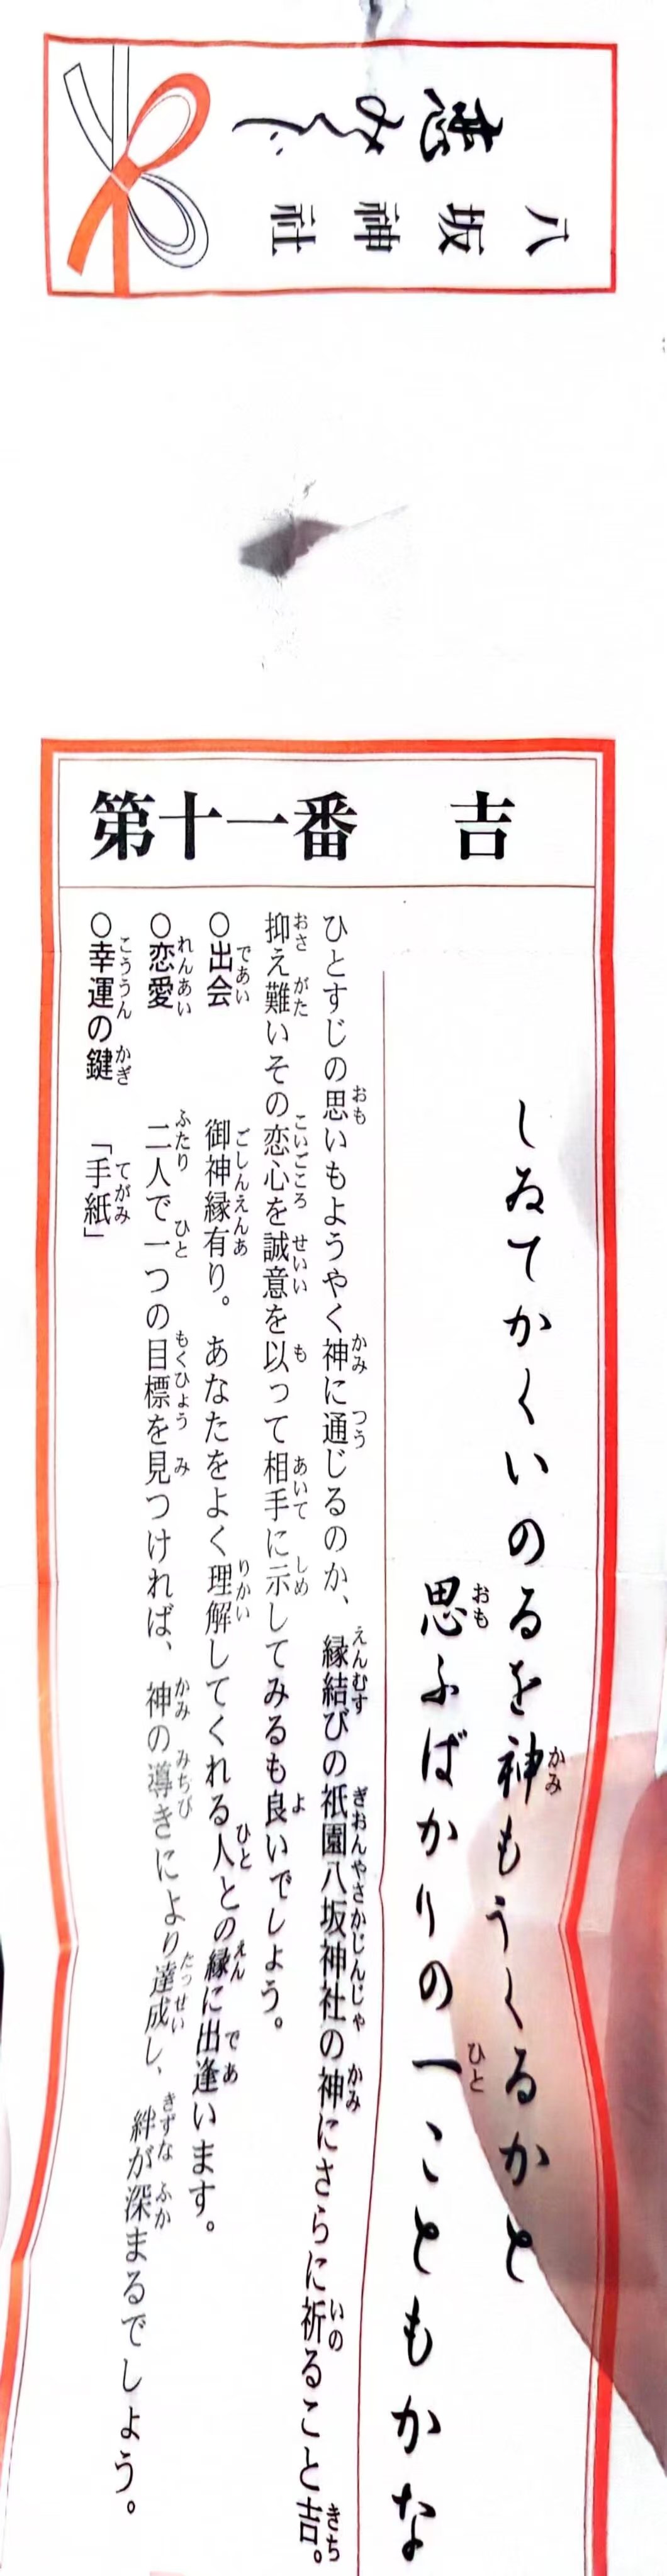 恋みくじ
八坂神社
第十一番 吉
しゐてかくいのるを神もうくるかと
思ふばかりの一こともかな
ひとすじの思いもようやく神に通じるのか、縁結びの祇園八坂神社の神にさらに祈ること吉。
抑え難いその恋心を誠意を以って相手に示してみるも良いでしょう。
○出会 御神縁有り。あなたをよく理解してくれる人との縁に出逢います。
○恋愛 二人で一つの目標を見つければ、神の導きにより達成し、絆が深まるでしょう。
○幸運の鍵 「手紙」